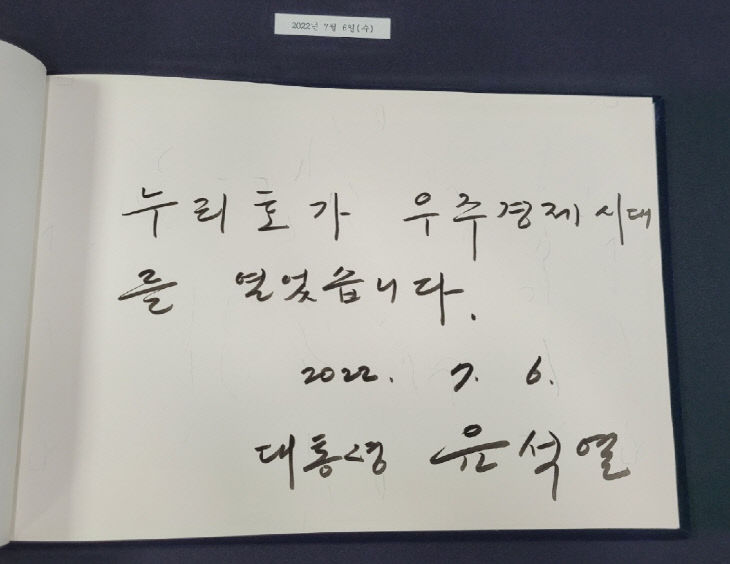 2022년 7월 6일(수)
누리호가 우주경제시대
를 열었습니다.
2022. 7. 6.
대통령 윤석열